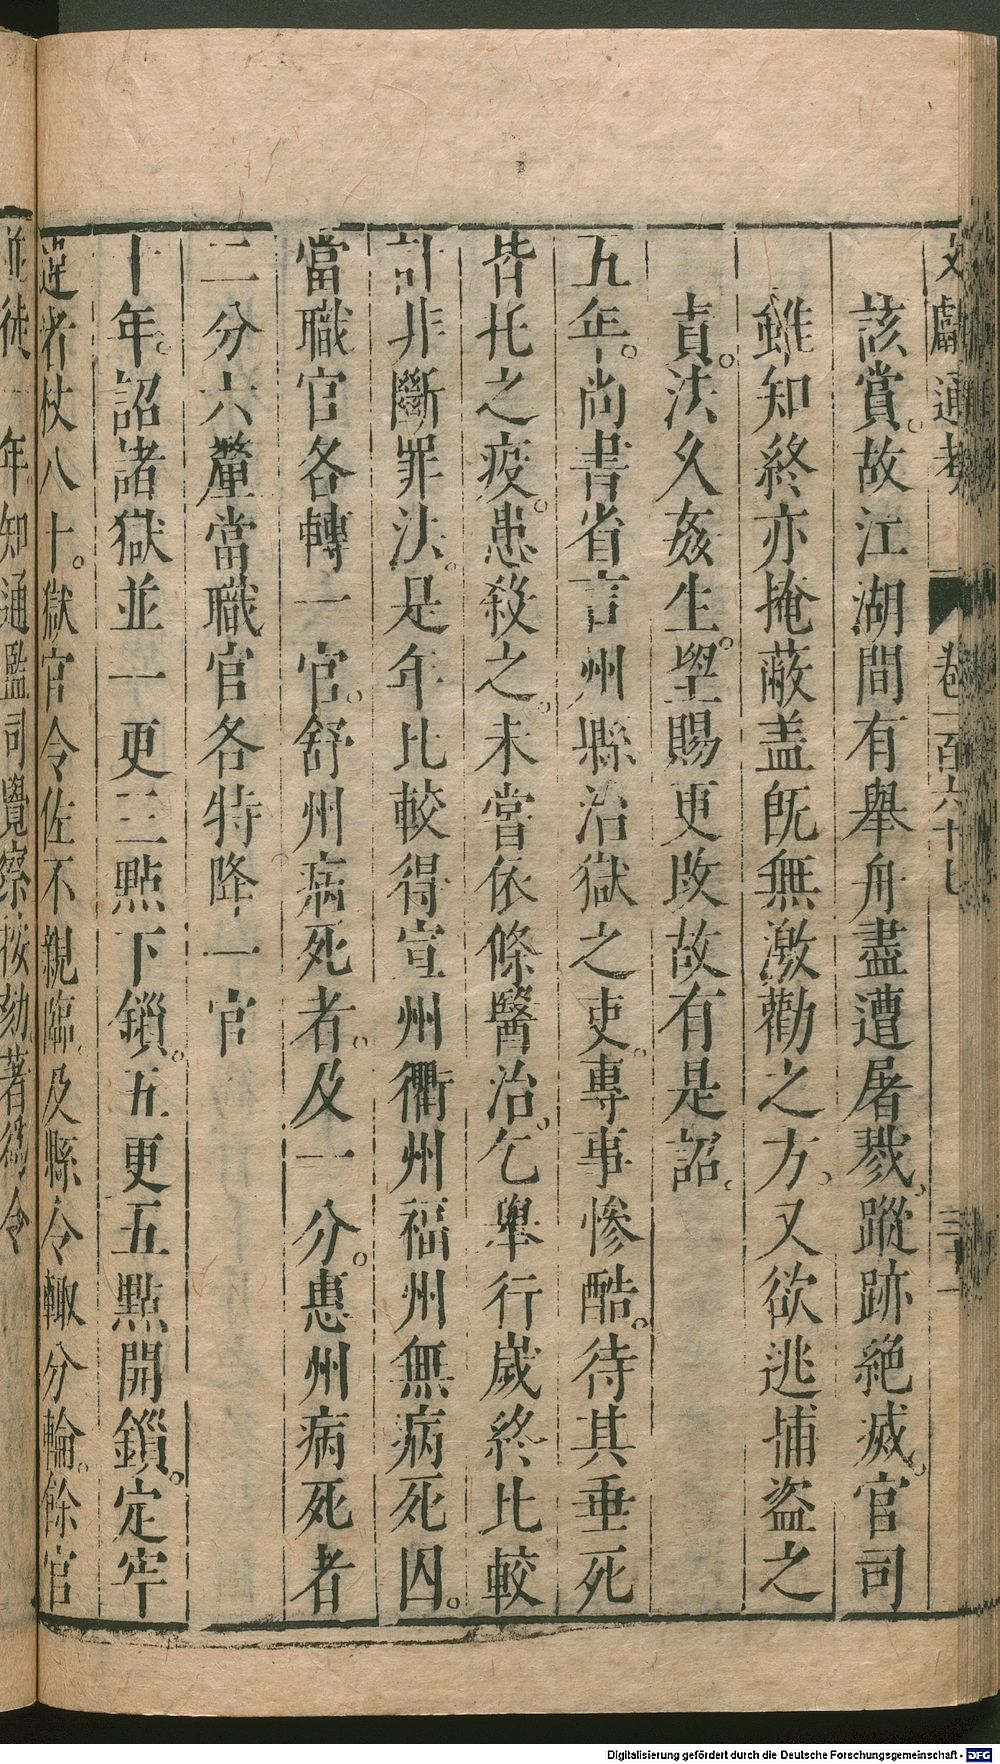 文獻通考 卷一百六十七 三十一
該賞。故江湖間有舉舟盡遭屠戮。蹤跡絕滅。官司
雖知終亦掩蔽盖旣無激勸之方。又欲逃捕盜之
責。法久姦生。望賜更改故有是詔。
五年。尚書省言州縣治獄之吏。專事慘酷。待其垂死
皆托之疫。患殺之。未嘗依條醫治。乞舉行歲終比較
計非斷罪法。是年比較得宣州衢州福州無病死囚。
當職官各轉一官。舒州病死者。及一分。惠州病死者
二分六釐當職官各特降一官
十年。詔諸獄並一更三點下鎻。五更五點開鎻。定牢
違者杖八十。獄官令佐不親臨。及縣令輙分輪。餘官
並徒一年知通監司覺察按劾著爲令
Digitalisierung gefördert durch die Deutsche Forschungsgemeinschaft - DFG